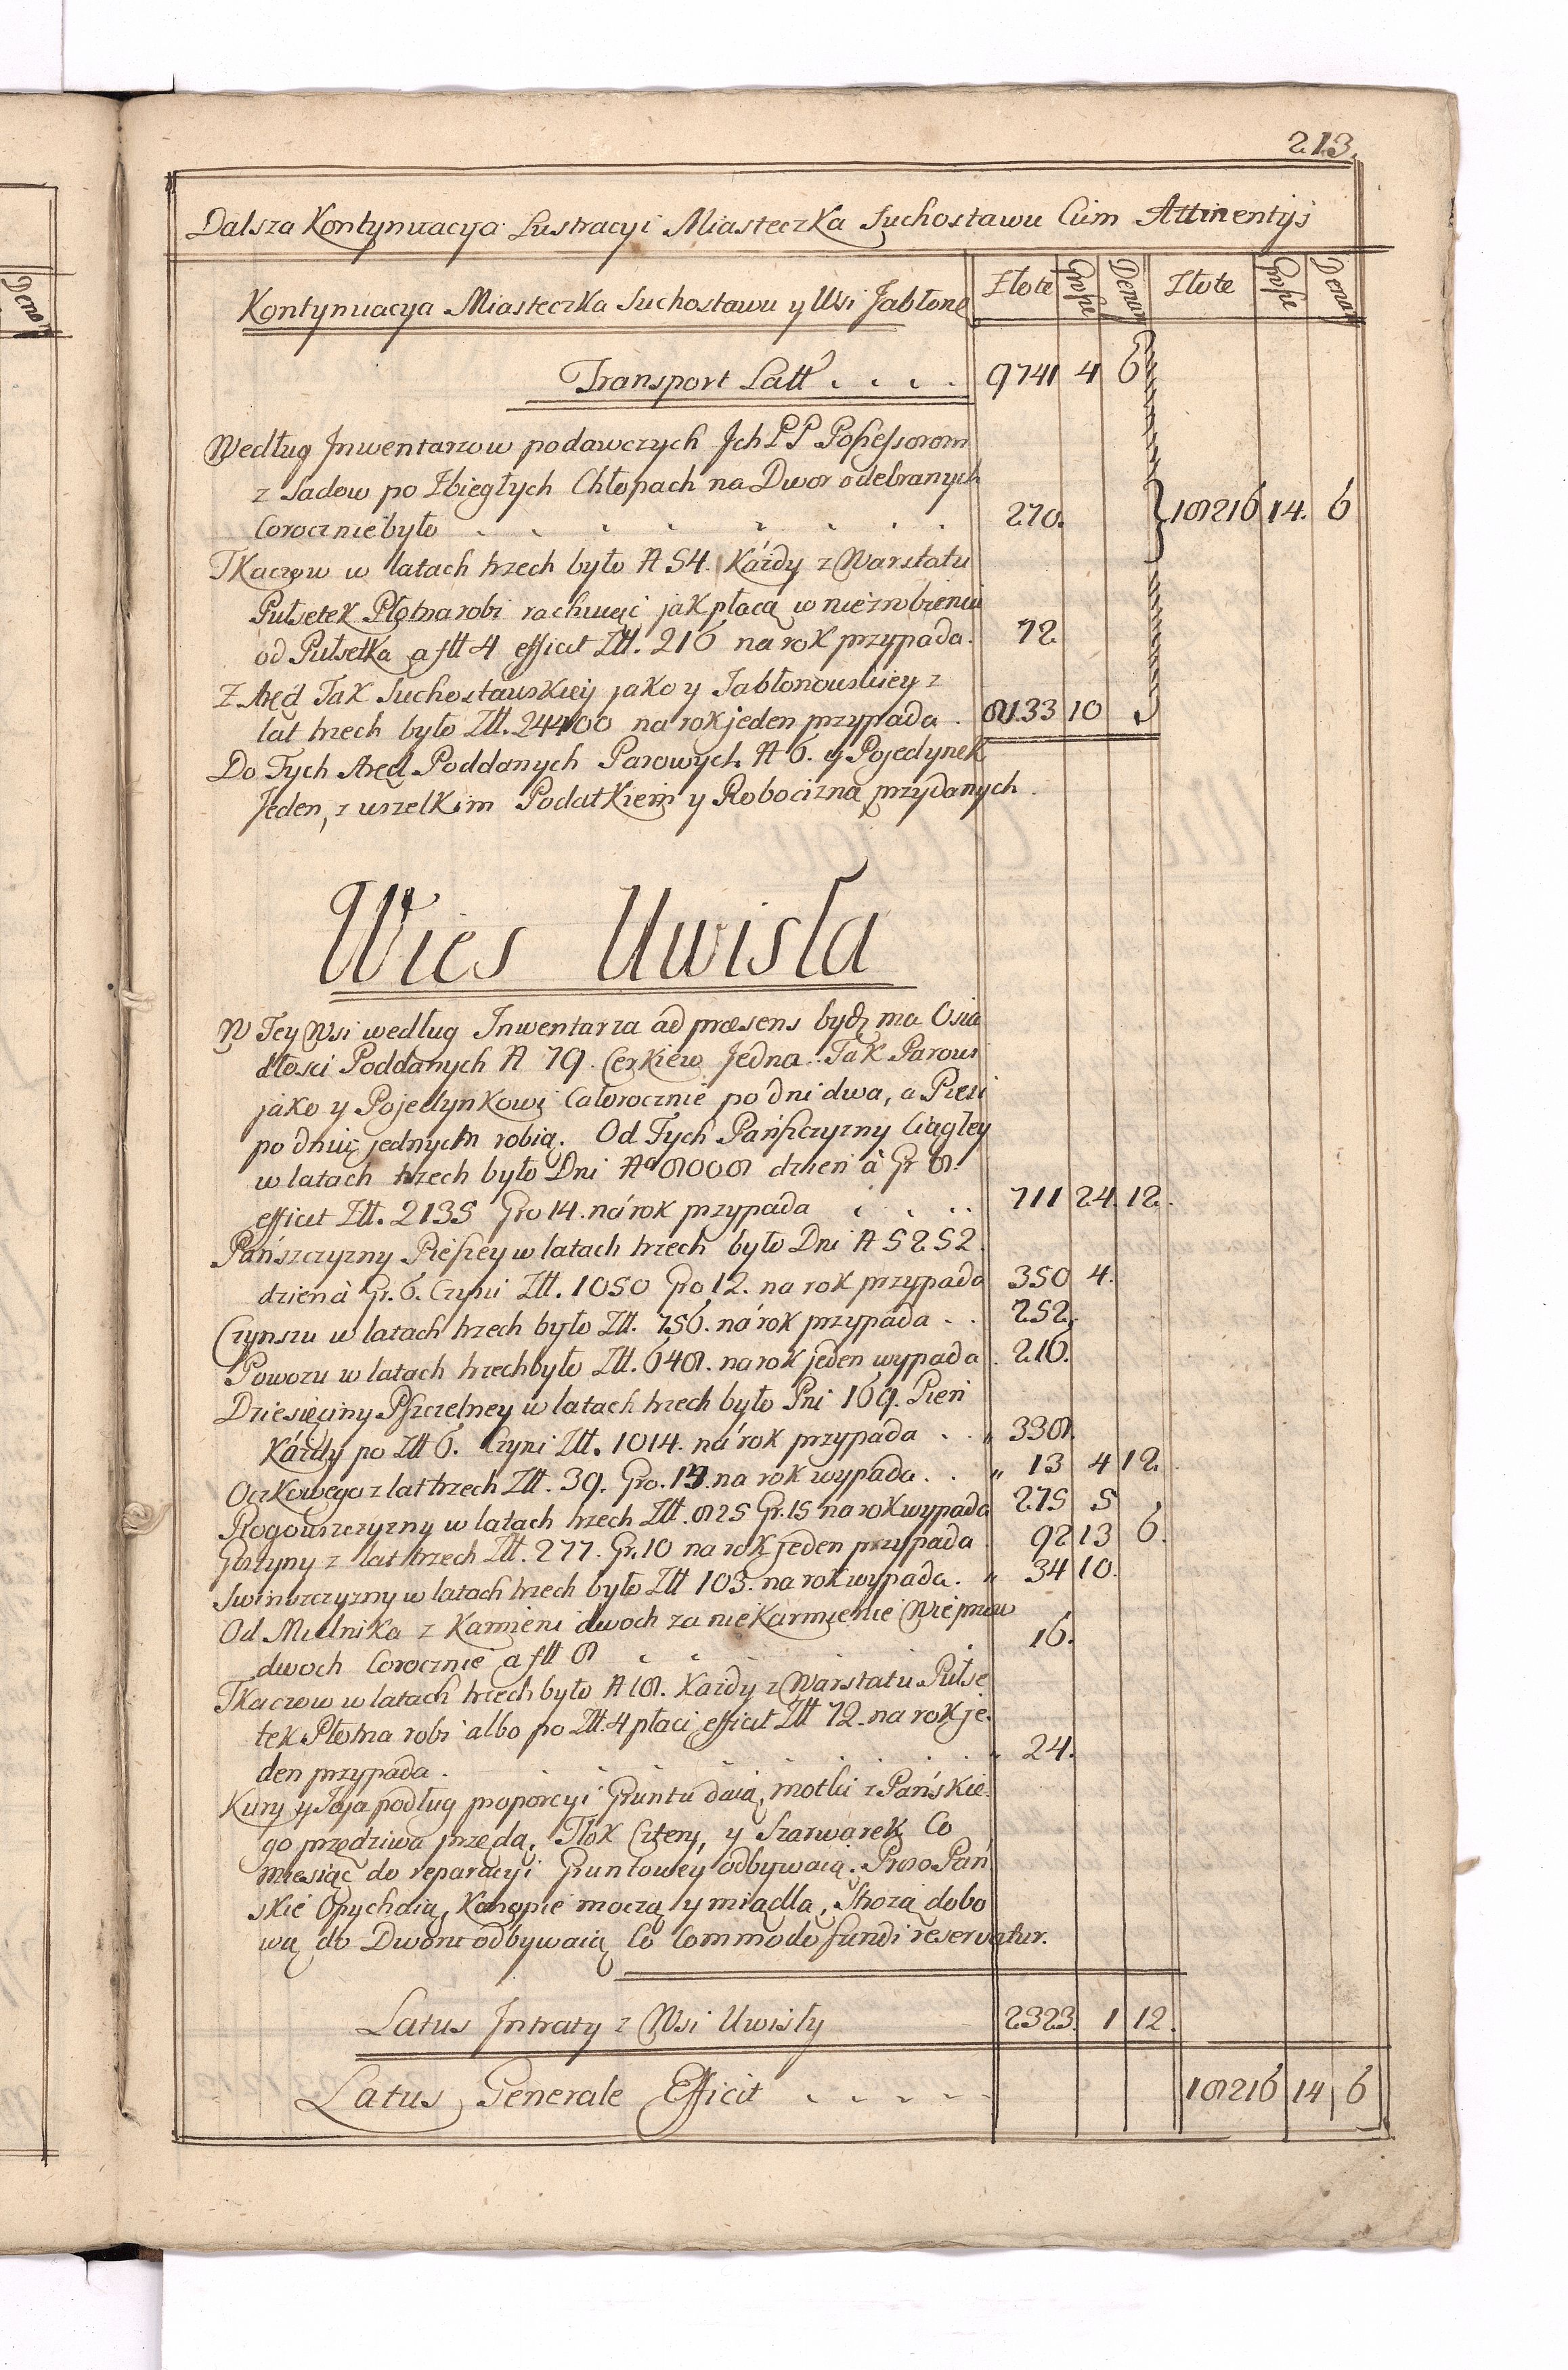 213.
Dalsza Kontynuacya Lustracyi Miasteczka Suchostawu Cum Attinentijs
Kontynuacya Miasteczka Suchostawu y Wsi Jabłono
Złote Grosze Denar Złote Grosze Denar
Transport Latt . . . . 9741 4 6
Według Jnwentarzow podawczych Jch PP Possessorom
z Sadow po Zbiegłych Chłopach na Dwor odebranych
Corocznie było . . . . . . . 270. 18216 14. 6
Tkaczow w latach trzech było A 54. Kázdy z Warstatu
Pułsetek Płotna robi rachuiąc jak płacą w niezrobieniu
od Pułsetka a fll 4 efficit Zll. 216 na rok przypada. 72
Z Aręd Tak Suchostawskiey jako y Jabłonowskiey z
lat trzech było Zll. 24400 na rok jeden przypada . 8133 10
Do Tych Aręd Poddanych Parowych A 6. y Pojedynek
Jeden, z wszelkim Podatkiem y Robocizną przydanych.
Wies Uwisła
W Tey Wsi według Inwentarza ad præsens bydź ma Osia
dłosci Poddanych A 79. Cerkiew Jedna. Tak Parowi
jako y Pojedynkowi Całorocznie po dni dwa, a Piesi
po dniu jednym robią. Od Tych Pańszczyzny Ciągłey
w latach trzech było Dni Aº 8008 dzien à Gr 8.
efficit Zll. 2135 Gro 14. ná rok przypada . . . . 711 24. 12.
Pańszczyzny Pieszey w latach trzech było Dni A 5252.
dzien à Gr. 6. Czyni Zll. 1050 Gro 12. na rok przypada 350 4.
Czynszu w latach trzech było Zll. 756. ná rok przypada . . 252.
Powozu w latach trzech było Zll. 648. na rok jeden wypada . 216.
Dziesięciny Pszczelney w latach trzech było Pni 169. Pień
Kázdy po Zll 6. Czyni Zll. 1014. ná rok przypada . . „ 338.
Oczkowego z lat trzech Zll. 39. Gro. 14 na rok wypada. . „ 13 4 12.
Rogowszczyzny w latach trzech Zll. 825 Gr. 15 na rok wypada 275 5
Gostyny z lat trzech Zll. 277. Gr. 10 na rok jeden przypada 92 13 6.
Swinszczyzny w latach trzech było Zll 103. na rok wypada. „ 34 10.
Od Mielnika z Kamieni dwoch za nie Karmienie Wieprzow
dwoch Corocznie a fll 8 . . . 16.
Tkaczow w latach trzech było A 18. Kazdy z Warstatu Pułse
tek Płotna robi albo po Zll. 4 płaci, efficit Zll 72. na rok je=
den przypada . . . . . . . . 24.
Kury y Jaja podług proporcyi Gruntu daią, motki z Pańskie=
go przędziwa przędą, Tłok Cztery, y Szarwarek Co
miesiąc do reparacyi Gruntowey odbywaią. Proso Pań
skie Opychaią, Konopie moczą y miądlą, Stroza dobo
wą do Dworu odbywaią Co Commodo fundi reservatur.
Latus Jntraty z Wsi Uwisły 2323. 1 12.
Latus Generale Efficit . . . . . 18216 14 6